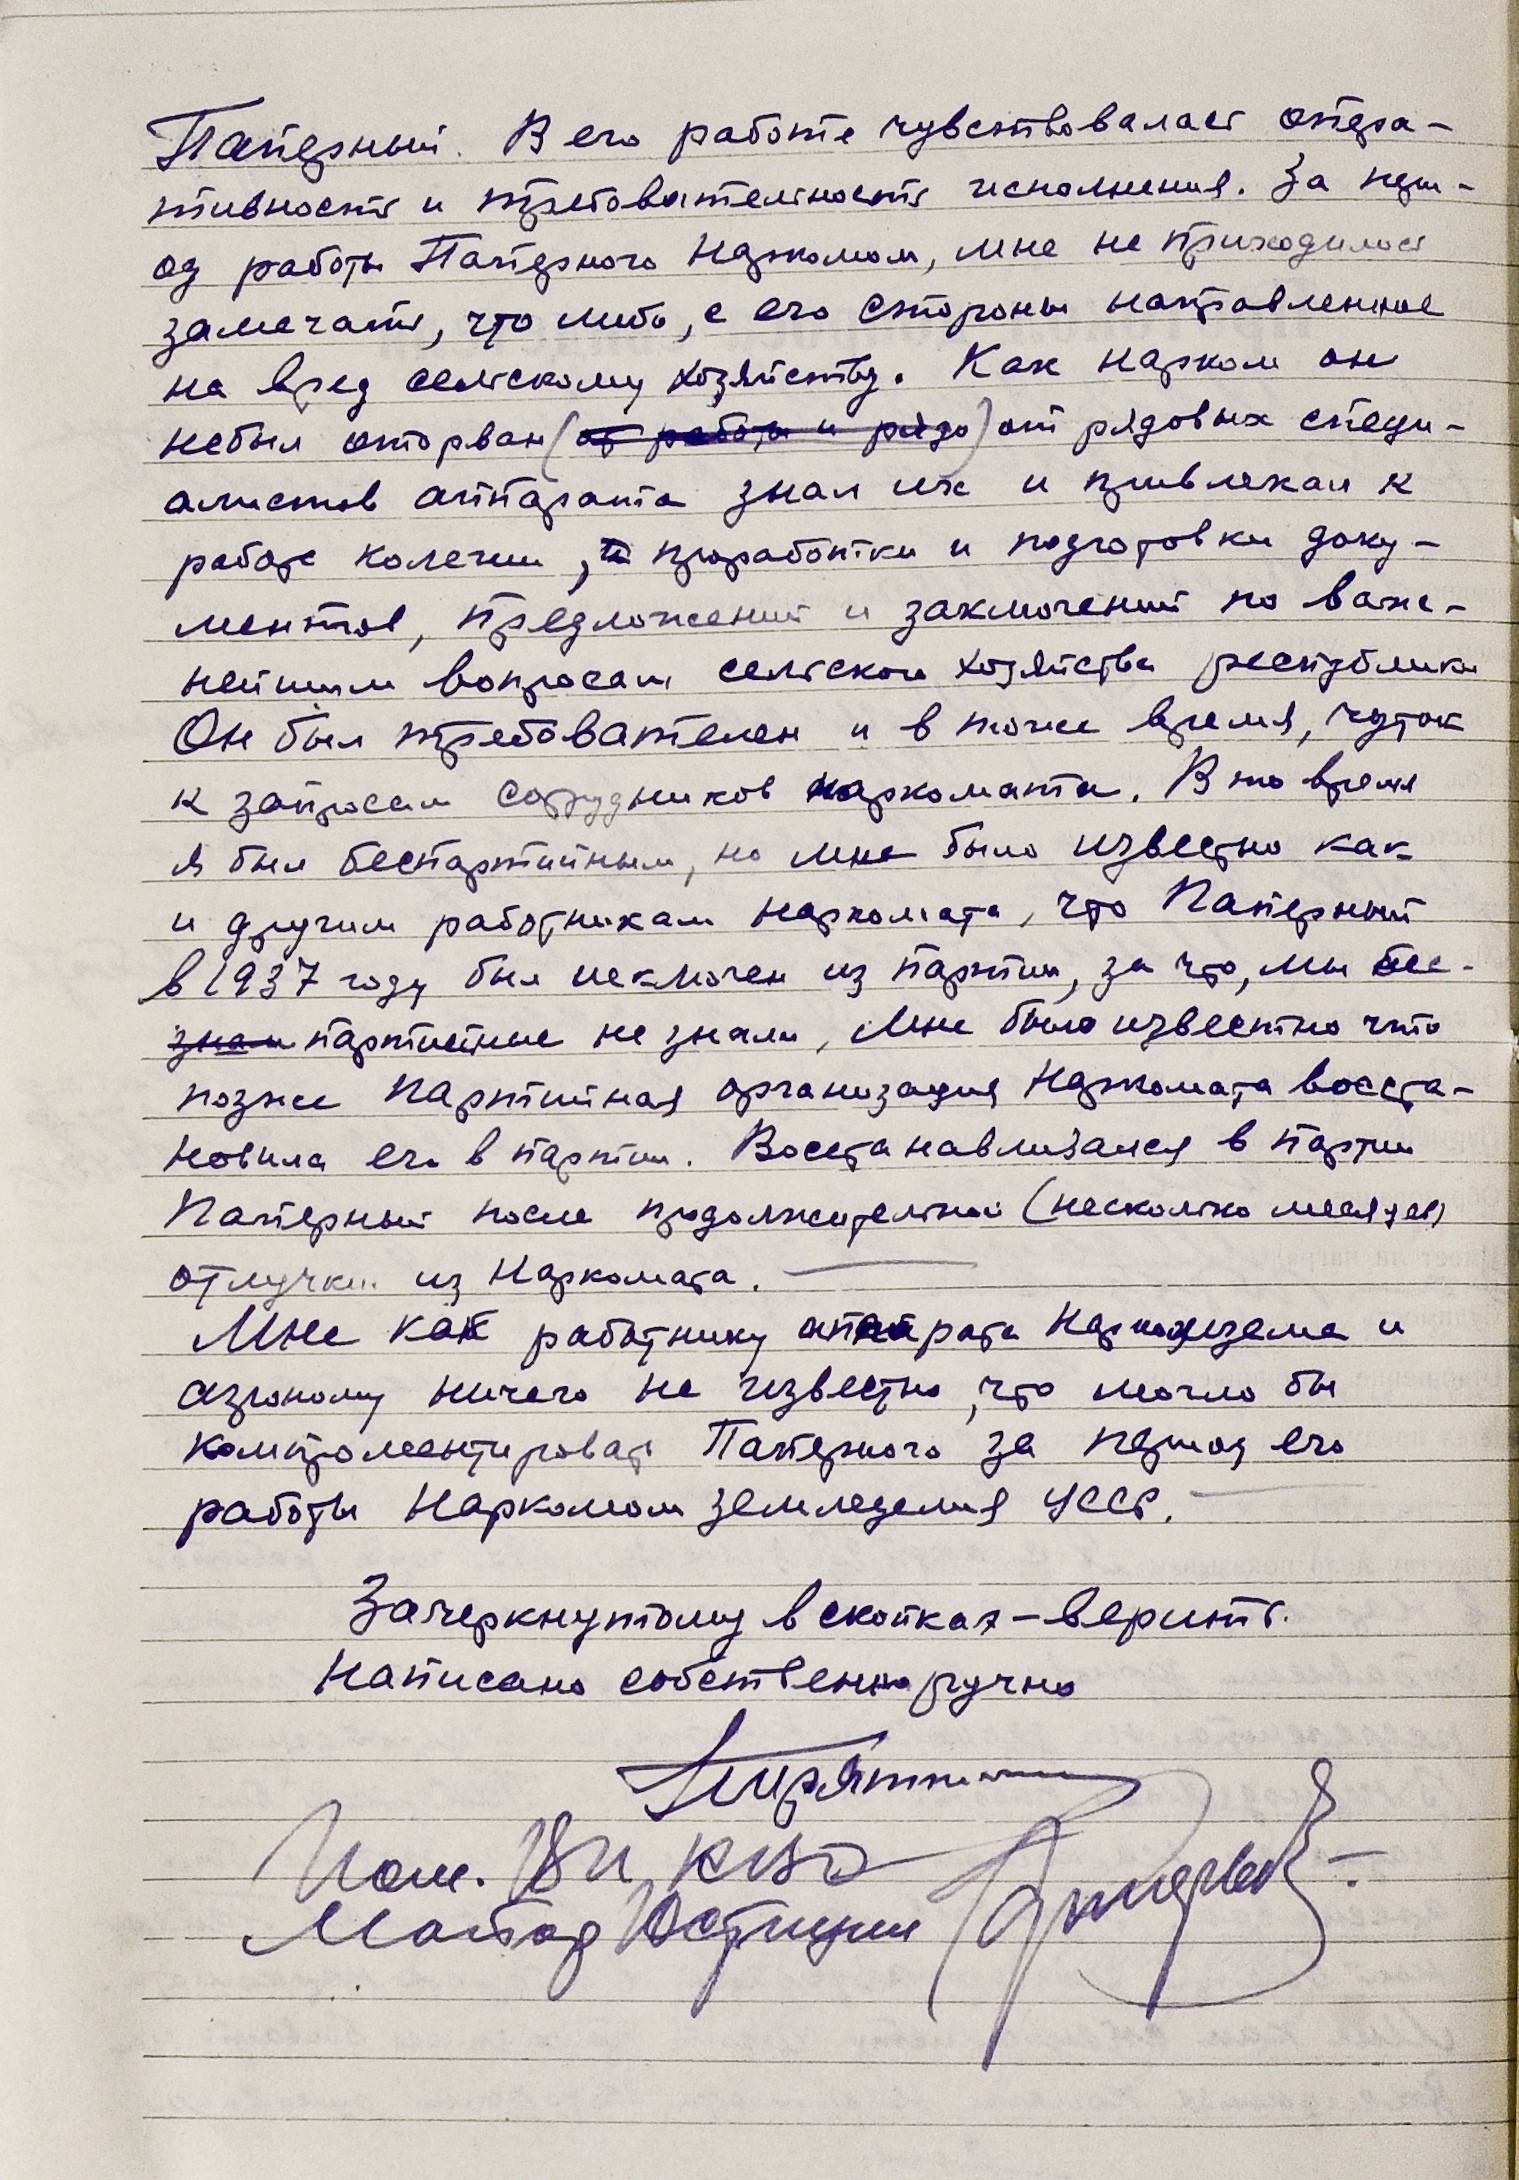 Паперный. В его работе чувствовалась опера-
тивность и требовательность исполнения. За пери-
од работы Паперного Наркомом, мне не приходилось
замечать, что либо, с его стороны направленное
на вред сельскому хозяйству. Как нарком он
небыл оторван (от работы и рядо) от рядовых специ-
алистов аппарата знал их и привлекал к
работе колегии, и проработки и подготовки доку-
ментов, предложений и заключений по важ-
нейшим вопросам сельского хозяйства республики
Он был требователен и в тоже время, чуток
к запросам сотрудников наркомата. В то время
я был беспартийным, но мне было известно как
и другим работникам наркомата, что Паперный
в 1937 году был исключен из партии, за что, мы бес-
знали партийные не знали, Мне было известно что
позже партийная организация Наркомата восста-
новила его в партии. Восстанавливался в партии
Паперный после продолжительной (несколько месяцев)
отлучки из Наркомата.
Мне как работнику аппарата Наркомзема и
агроному ничего не известно, что могло бы
компрометировать Паперного за период его
работы Наркомом земледелия УССР.
Зачеркнутому в скопках – верить.
Написано собственноручно
Пом. ВП КВО
Майор Юстиции